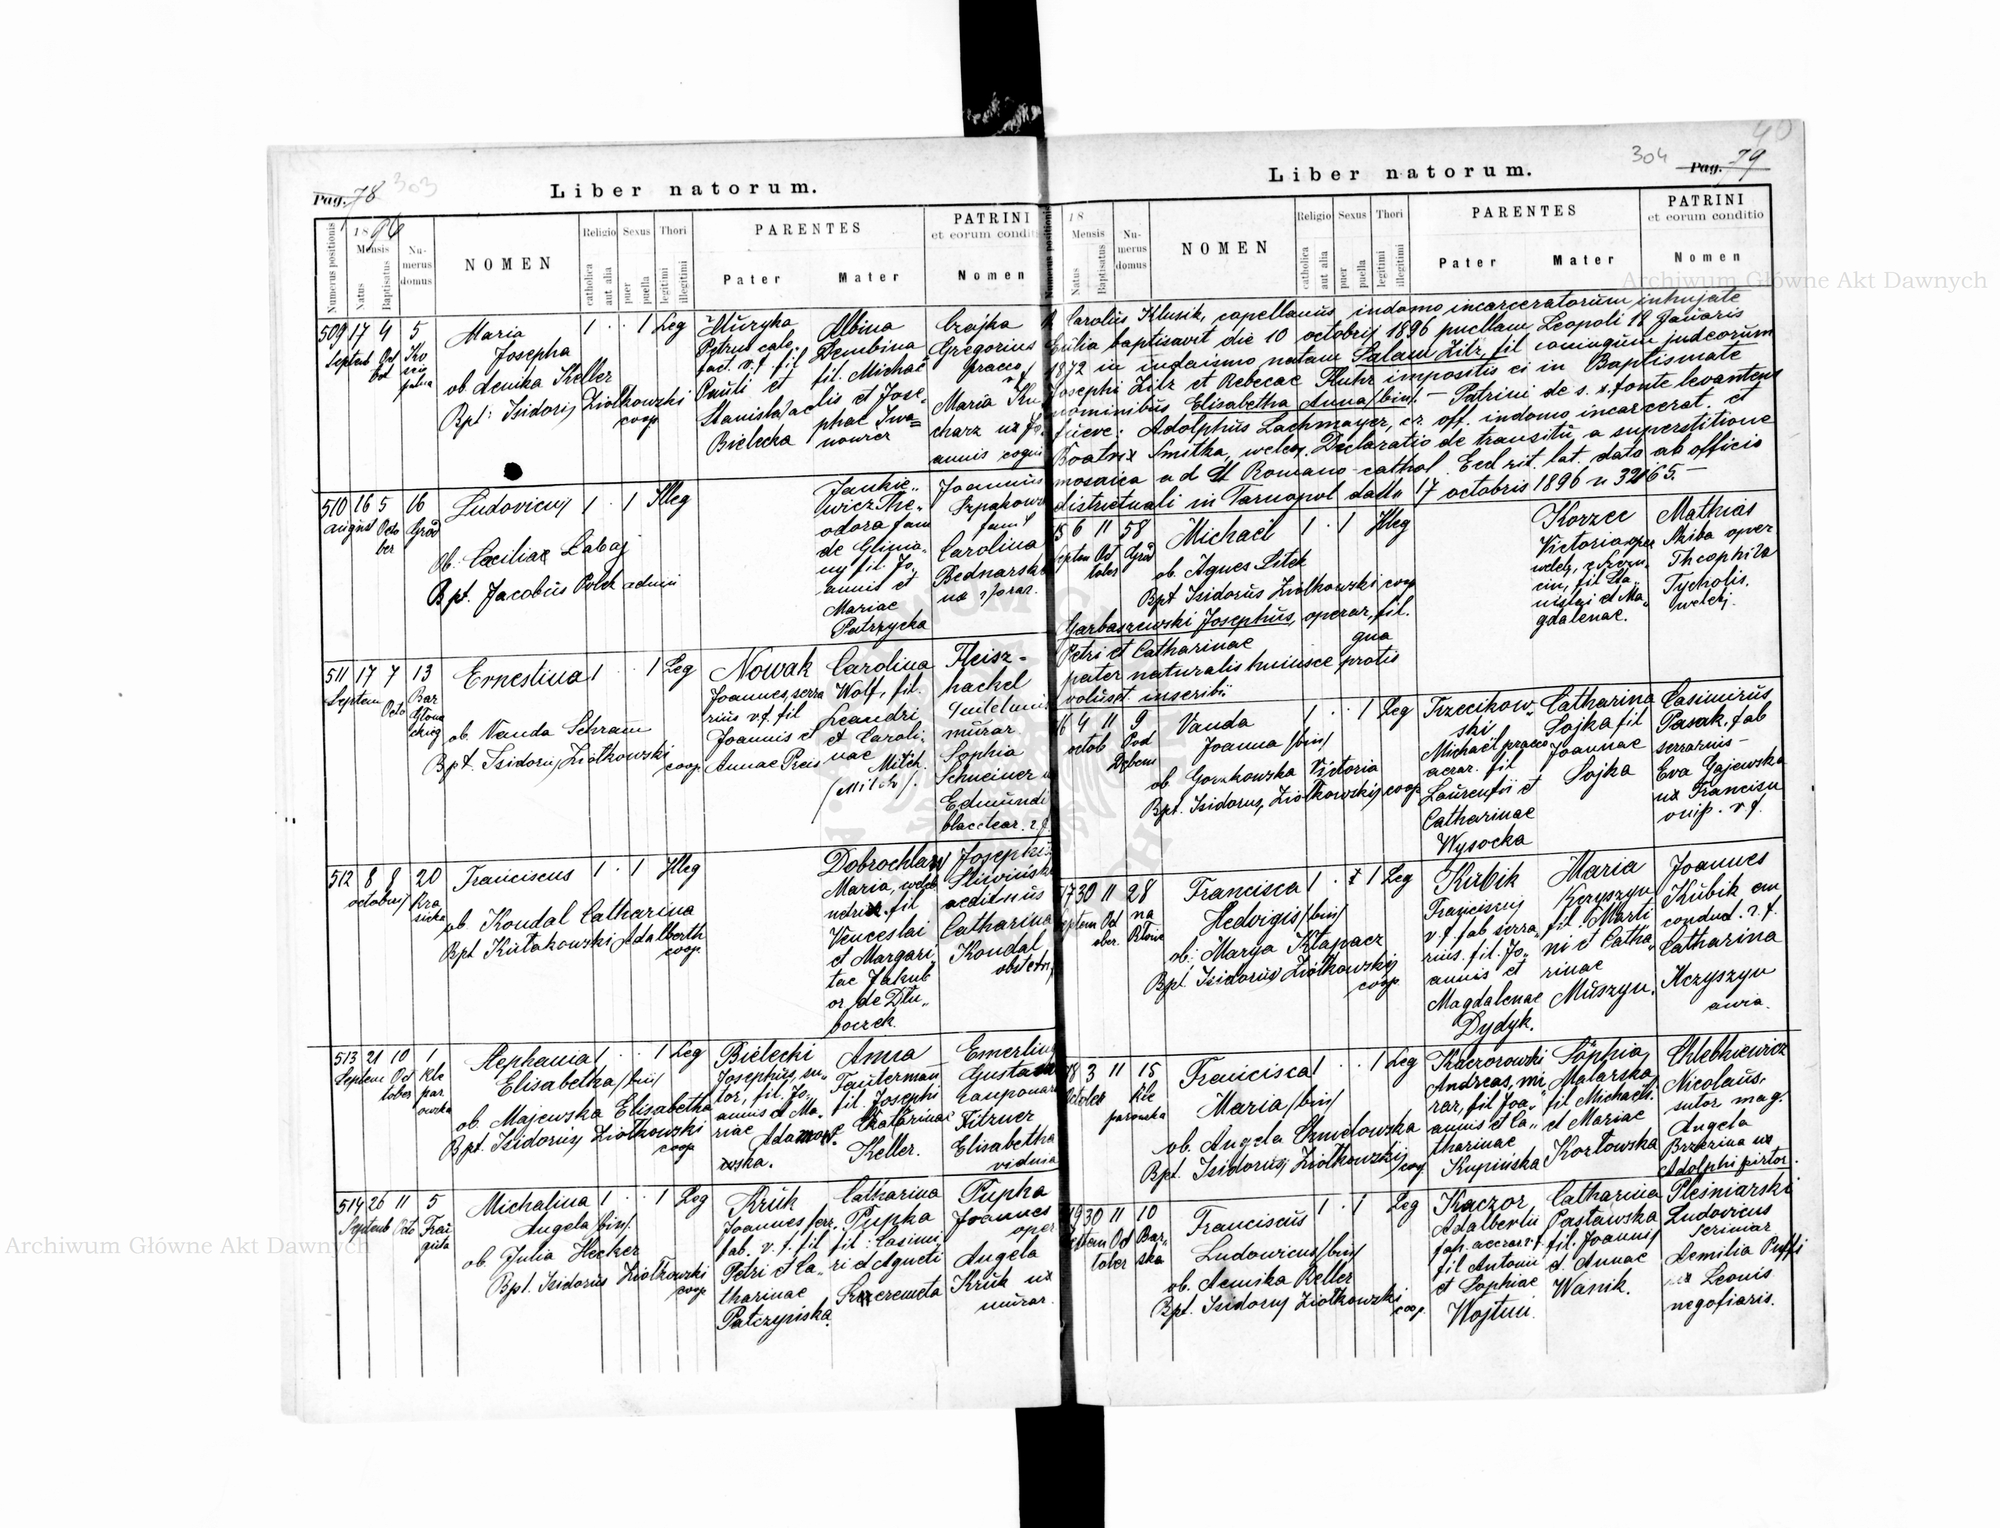 Pag. 78 303
Liber natorum.
1896
Numerus positionis
Mensis
Natus
Baptisatus
Numerus domus
NOMEN
Religio
catholica
aut alia
Sexus
puer
puella
Thori
legitimi
illegitimi
PARENTES
Pater
Mater
PATRINI
et eorum conditi
Nomen
509 17 4 5
Septemb Oct
Maria
Josepha
ob Aemika Keller
Bpt: Isidorus Ziołkowski
coop
1 1 Leg
Muzyka
Petrus
v.f. fil
Pauli et
Stanislava
Bielecka
Albina
Dembina
fil. Michae
lis et Jose
phae Iwa=
Czajka
Gregorius
praeco
Maria Ku
charz ux Jo
annis
510 16 5 16
August Octo
ber
Gród
Ludovicus
ob. Caeciliae Labaj
Bpt. Jacobus Polek admin
1 1 Illeg
Jankie„
wicz The„
odora fam
de Glinia„
ny fil Jo„
annis et
Mariae
Patrzycka
Joannes
Szpakows
fam
Carolina
Bednarska
ux
511 17 7 13
Septem Octo
Ernestina
ob. Vanda Schram
Bpt. Isidorus Ziołkowski
coop
1 1 Leg
Nowak
Joannes, serra
rius v.f. fil
Joannis et
Annae Preis
Carolina
Wolf, fil.
Leandri
et Caroli„
nae Mitch.
/Mitch/.
Fleisz-
hackel
murar
Sophia
Schneiner
Edmundi
512 8 8 20
octobris
Kra
sicka
Franciscus
ob Kondal Catharina
Bpt Kułakowski Adalberth
coop
1 1 Illeg
Dobrochław
Maria,
fil
Venceslai
et Margari
tae Jakub
or. de Dłu„
boczek.
Josephus
Śliwiński
aedituus
Catharina
Kondal
obstetrix
513 21 10 1
Septem Oc
tober
Kle
par
owska
Stephania
Elisabetha /bin/
ob. Majewska Elisabetha
Bpt. Isidorus Ziołkowski
coop
1 1 Leg
Bielecki
Josephus, su„
tor, fil. Jo„
annis et Ma„
riae
Adamow
wska.
Anna
Tauterman
fil. Josephi
Catharinae
Keller.
Emerling
Gustavus
cauponar
Fitzner
Elisabetha
vidua
514 26 11 5
Septemb Octo
Michalina
Angela /bin/.
ob. Julia Hecker
Bpt. Isidorus Ziołkowski
coop
1 1 Leg
Kruk
Joannes
fab. v. f. fil
Petri et Ca„
tharinae
Patczyńska.
Catharina
Pupka
fil: Casimi
ri et Agneti
Szeremeta
Pupka
Joannes
oper
Angela
Kruk ux
murar.
40
304 Pag. 79
Liber natorum.
18
Numerus positionis
Mensis
Natus
Baptisatus
Numerus domus
NOMEN
Religio
catholica
aut alia
Sexus
puer
puella
Thori
legitimi
illegitimi
PARENTES
Pater
Mater
PATRINI
et eorum conditio
Nomen
Carolus Klusik, capellanus indomo incarceratorum
baptisavit die 10 octobris 1896 puellam, Leopoli 19 Januaris
1872 in iudaismo natam Salam Zilz, fil coniugum judeorum
Josephi Zilz et Rebecae Ruhr impositis ei in Baptismate
nominibus Elisabetha Anna /bin/. – Patrini de s. fonte levantens
fuere: Adolphus Lachmayer, cr. off. indomo incarcerat. et
Beatrix Smitka, Declaratio de transitu a superstitione
mosaica ad Romano-cathol. Eccl rit. lat. data ab officio
districtuali in Tarnopol datta 17 octobris 1896 n 32465.–
15 6 11 58
Septem Oc
tober
Gród
Michael
ob. Agnes Litek
Bpt Isidorus Ziołkowski coop
1 1 Illeg
Korzec
Victoria
fil Sta„
nislai et Ma„
gdalenae.
Mathias
Skiba oper
Theophila
Tycholis.
Garbaszewski Josephus, operar, fil.
Petri et Catharinae qua
pater naturalis huiusce protis
voluset inscribi
16 4 11 9
octob
Pod
Dębem
Vanda
Joanna /bin/
ob Victoria
Bpt. Isidorus, Ziołkowski coop
1 1 Leg
Trzecikow„
ski
Michael praeco
aerar. fil
Laurentii et
Catharinae
Wysocka
Catharina
Sojka fil
Joannae
Sojka
Casimirus
Pasak, fab
serrarius–
Eva Gajewska
ux Francisci
v.f.
17 30 11 28
Septem Oc
ober.
na
Błonie
Francisca
Hedvigis /bin/
ob: Marya Kłapacz
Bpt. Isidorus Ziołkowski
coop
1 1 Leg
Kubik
Franciscus
v.f. fab serra„
rius. fil. Jo„
annis et
Magdalenae
Dydyk.
Maria
Krzyszyn
fil: Marti
ni et Catha„
rinae
Muszyn.
Joannes
Kubik
conduct. v.f.
Catharina
Krzyszyn
avia.
18 3 11 15
October
Kle
parowska
Francisca
Maria /bin/
ob. Angela Szmelowska
Bpt. Isidorus Ziołkowski coop
1 1 Leg
Kaczorowski
Andreas, mu
rar, fil Joa„
annis et Ca„
tharinae
Kupińska
Sophia
Malarska
fil Michaeli
et Mariae
Kozłowska
Chlebkiewicz
Nicolaus,
sutor mag.
Angela
Brzezina ux
Adolphi pistor.
19 30 11 10
Septem Oc
tober
Bar„
ska
Franciscus
Ludowicus /bin/
ob. Aemika Keller
Bpt. Isidorus Ziołkowski
coop.
1 1 Leg
Kaczor
Adalbertii
fab. aerar v.f.
fil Antonii
et Sophiae
Wojtun.
Catharina
Pastawska
fil. Joannis
et. Annae
Wanik.
Pleśniarski
Ludovicus
scriniar
Aemilia Puffi
ux Leonis
negotiaris.
Archiwum Główne Akt Dawnych
Archiwum Główne Akt Dawnych